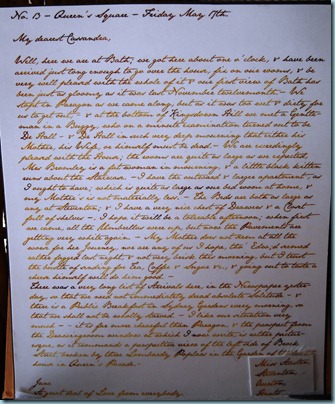 No. 13 – Queen's Square – Friday May 17th.
My dearest Cassandra,
Well, here we are at Bath; we got here about one o'clock, & have been
arrived just long enough to go over the house, fix on our rooms, & be
very well pleased with the whole of it
been just as gloomy, as it was last November twelvemonth –
in Paragon as we came along, but as it was too wet & dirty for
us to get out – & at the bottom of Kingsdown Hill we met a Gentle-
man in a Buggy, who on a minute examination turned out to be
Dr. Hall – & Dr. Hall in such very deep mourning that either his
Mother, his Wife, or himself must be dead – We are exceedingly
pleased with the House; the rooms are quite as large as we expected,
Mrs Bromley is a fat woman in mourning, & a little black kitten
runs about the Staircase – I have the outward & larger apartment, as
I ought to have; which is quite as large as our bed room at home, &
my Mother's is not materially less – The Beds are both as large as
any at Steventon; & I have a very nice chest of Drawers & a Closet
full of shelves – I hope it will be a tolerable afternoon; when first
we came, all the Umbrellas were up, but now the Pavements are
getting very white again – My Mother does not seem at all the
worse for her Journey, nor are any of us I hope, tho' Edw:d seemed
rather fagged last night, & not very brisk this morning, but I trust
the bustle of sending for Tea, Coffee & Sugar &c., & going out to taste a
cheese himself will do him good –
There was a very long list of Arrivals here, in the Newspaper yester-
day, so that we need not immediately dread absolute Solitude – &
there is a Public Breakfast in Sydney Gardens every morning, so
that we shall not be wholly starved – I like our situation very
much – it is far more chearful than Paragon, & the prospect from
the Drawingroom window at which I now write, is rather pictur-
esque, as it commands a perspective view of the left side of Brock
Street, broken by three Lombardy Poplars in the Garden of the last
house in Queen's Parade –
Jane
from everybody
Miss Austen
Steventon